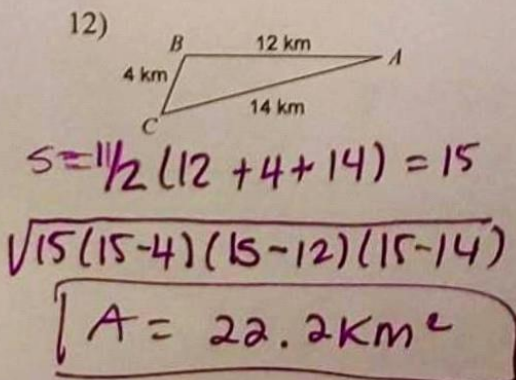 12)
B 12 km A
4 km
14 km
C
S = 11/2 (12 + 4 + 14) = 15
√15(15-4)(15-12)(15-14)
A = 22.2 Km²